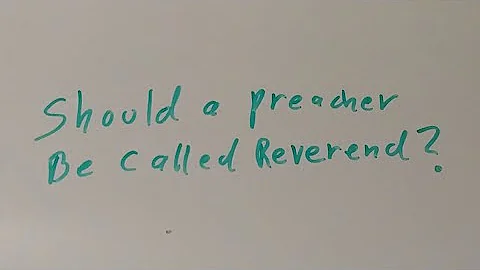 Should a preacher
Be called Reverend?